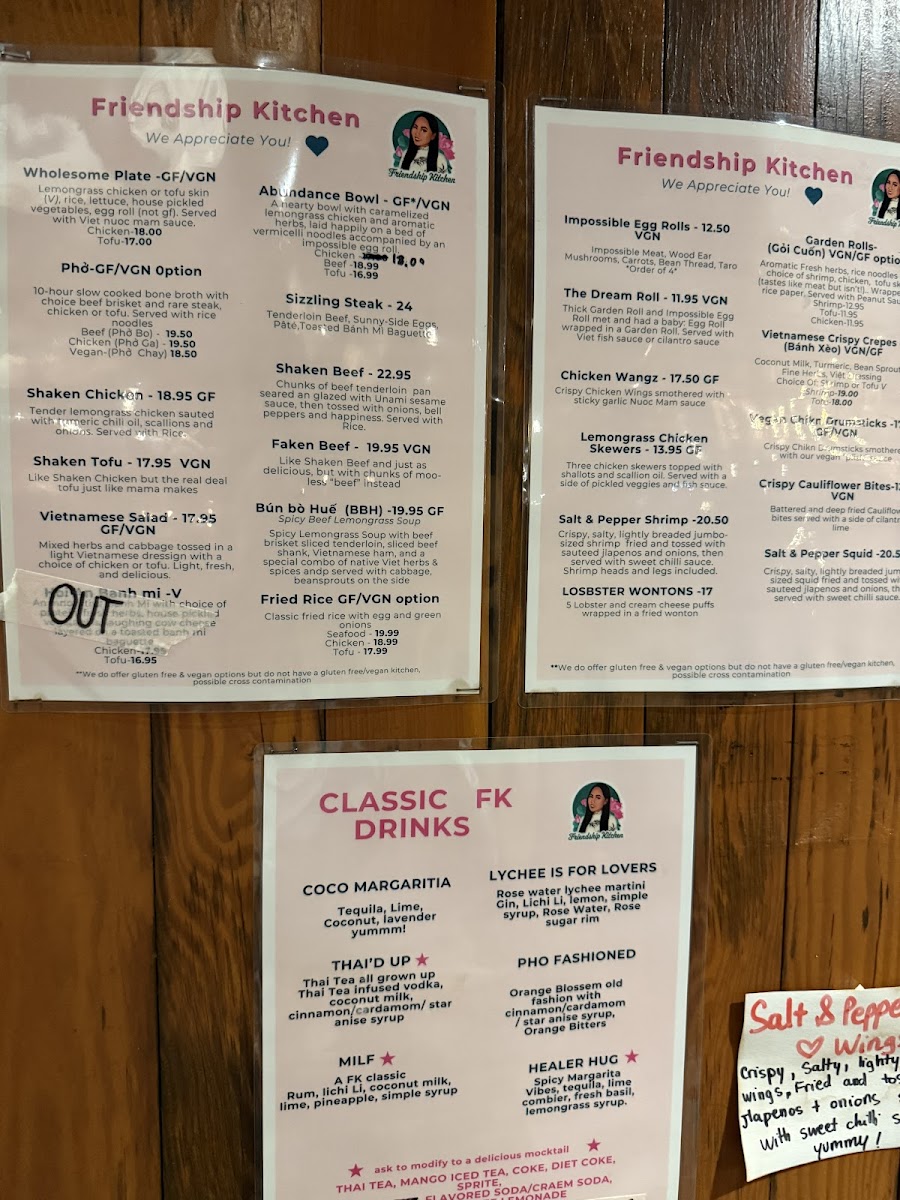 Friendship Kitchen
We Appreciate You!
Friendship Kitchen
Wholesome Plate -GF/VGN
Lemongrass chicken or tofu skin
(V), rice, lettuce, house pickled
vegetables, egg roll (not gf). Served
with Viet nuoc mam sauce.
Chicken-18.00
Tofu-17.00
Phở-GF/VGN 0ption
10-hour slow cooked bone broth with
choice beef brisket and rare steak,
chicken or tofu. Served with rice
noodles
Beef (Phở Bo) - 19.50
Chicken (Phở Ga) - 19.50
Vegan-(Phở Chay) 18.50
Shaken Chicken - 18.95 GF
Tender lemongrass chicken sauted
with tumeric chili oil, scallions and
onions. Served with Rice.
Shaken Tofu - 17.95 VGN
Like Shaken Chicken but the real deal
tofu just like mama makes
Vietnamese Salad - 17.95
GF/VGN
Mixed herbs and cabbage tossed in a
light Vietnamese dressign with a
choice of chicken or tofu. Light, fresh,
and delicious.
OUT
Banh mi -V
Mi with choice of
herbs, house pickled
laughing cow cheese
layered a toasted banh mi
baguette
Chicken-17.95
Tofu-16.95
Abundance Bowl - GF*/VGN
A hearty bowl with caramelized
lemongrass chicken and aromatic
herbs, laid happily on a bed of
vermicelli noodles accompanied by an
impossible egg roll
Chicken - 18.00
Beef -18.99
Tofu -16.99
Sizzling Steak - 24
Tenderloin Beef, Sunny-Side Eggs,
Pâté,Toasted Bánh Mì Baguette
Shaken Beef - 22.95
Chunks of beef tenderloin pan
seared an glazed with Unami sesame
sauce, then tossed with onions, bell
peppers and happiness. Served with
Rice.
Faken Beef - 19.95 VGN
Like Shaken Beef and just as
delicious, but with chunks of moo-
less "beef" instead
Bún bò Huế (BBH) -19.95 GF
Spicy Beef Lemongrass Soup
Spicy Lemongrass Soup with beef
brisket sliced tenderloin, sliced beef
shank, Vietnamese ham, and a
special combo of native Viet herbs &
spices andp served with cabbage,
beansprouts on the side
Fried Rice GF/VGN option
Classic fried rice with egg and green
onions
Seafood - 19.99
Chicken - 18.99
Tofu - 17.99
**We do offer gluten free & vegan options but do not have a gluten free/vegan kitchen,
possible cross contamination
Friendship Kitchen
We Appreciate You!
Friendship
Impossible Egg Rolls - 12.50
VGN
Impossible Meat, Wood Ear
Mushrooms, Carrots, Bean Thread, Taro
*Order of 4*
The Dream Roll - 11.95 VGN
Thick Garden Roll and Impossible Egg
Roll met and had a baby: Egg Roll
wrapped in a Garden Roll. Served with
Viet fish sauce or cilantro sauce
Chicken Wangz - 17.50 GF
Crispy Chicken Wings smothered with
sticky garlic Nuoc Mam sauce
Lemongrass Chicken
Skewers - 13.95 GF
Three chicken skewers topped with
shallots and scallion oil. Served with a
side of pickled veggies and fish sauce.
Salt & Pepper Shrimp -20.50
Crispy, salty, lightly breaded jumbo-
sized shrimp fried and tossed with
sauteed jlapenos and onions, then
served with sweet chilli sauce.
Shrimp heads and legs included.
LOSBSTER WONTONS -17
5 Lobster and cream cheese puffs
wrapped in a fried wonton
Garden Rolls-
(Gỏi Cuốn) VGN/GF
Aromatic Fresh herbs, rice noodles
choice of shrimp, chicken, tofu
(tastes like meat but isn't!).
rice paper. Served with Peanut
Shrimp-12.95
Tofu-11.95
Chicken-11.95
Vietnamese Crispy Crepes
(Bánh Xèo) VGN/GF
Coconut Milk, Turmeric, Bean
Fine Herbs, Việt Dressing
Choice Of: Shrimp or Tofu V
Shrimp-19.00
Tofu-18.00
Vegan Chikn Drumsticks
GF/VGN
Crispy Chikn Drumsticks
with our vegan sauce
Crispy Cauliflower Bites-
VGN
Battered and deep fried
bites served with a side of
lime
Salt & Pepper Squid
Crispy, salty, lightly breaded
sized squid fried and tossed
sauteed jlapenos and onions,
served with sweet chilli sauce.
**We do offer gluten free & vegan options but do not have a gluten free/vegan kitchen,
possible cross contamination
CLASSIC FK
DRINKS
Friendship Kitchen
COCO MARGARITIA
Tequila, Lime,
Coconut, lavender
yummm!
THAI'D UP ★
Thai Tea all grown up
Thai Tea infused vodka,
coconut milk,
cinnamon/cardamom/ star
anise syrup
MILF ★
A FK classic
Rum, lichi Li, coconut milk,
lime, pineapple, simple syrup
LYCHEE IS FOR LOVERS
Rose water lychee martini
Gin, Lichi Li, lemon, simple
syrup, Rose Water, Rose
sugar rim
PHO FASHIONED
Orange Blossem old
fashion with
cinnamon/cardamom
/ star anise syrup,
Orange Bitters
HEALER HUG ★
Spicy Margarita
Vibes, tequila, lime
combier, fresh basil,
lemongrass syrup.
★ ask to modify to a delicious mocktail ★
THAI TEA, MANGO ICED TEA, COKE, DIET COKE,
SPRITE,
FLAVORED SODA/CRAEM SODA,
LEMONADE
Salt & Peppe
♡ Wings
Crispy, Salty, lighty
wings, Fried and
Jlapenos + onions
With sweet chilli
yummy!